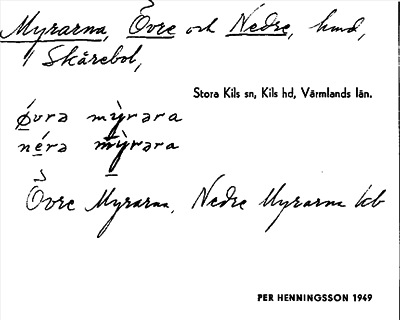 Myrarna, Övre och Nedre, hmd,
/ Skårebol,
Stora Kils sn, Kils hd, Värmlands län.
ǿvrə mỳrara
néra mỳrəra
Övre Myrarna, Nedre Myrarna kb
PER HENNINGSSON 1949